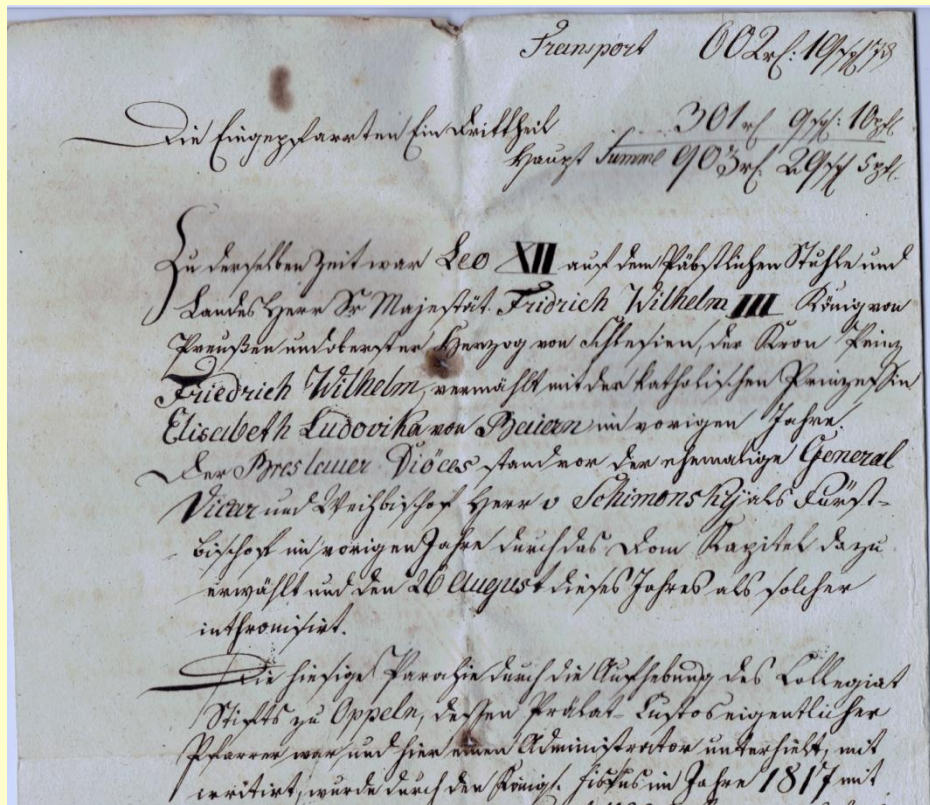 Transport 602 rf: 19 sgl 7 ₰
Die Eingepfarrten Ein Drittheil 301 rf 9 sgl: 10 pf.
Haupt Summe 903 rf. 29 sgl 5 pf.
Zu derselben Zeit war Leo XII auf dem Päbstlichen Stuhle und
Landes Herr Sr Majestät Fridrich Wilhelm III König von
Preußen und oberster Herzog von Schlesien, der Kron Prinz
Friedrich Wilhelm, vermählt mit der katholischen Prinzessin
Elisabeth Ludovika von Baiern im vorigen Jahre.
Der Breslauer Diöces stand vor der ehemalige General
Vicar und Weihbischof Herr v Schimonsky als Fürst-
bischof im vorigen Jahre durch das Dom Kapitel dazu
erwählt und den 26 August dieses Jahres als solcher
inthronisirt.
Die hiesige Parochie durch die Aufhebung des Collegiat
Stifts zu Oppeln, dessen Prälat Custos eigentlicher
Pfarrer war und hier einen Administrator unterhielt, mit
wurde durch den Königl. Fiskus im Jahre 1817 mit